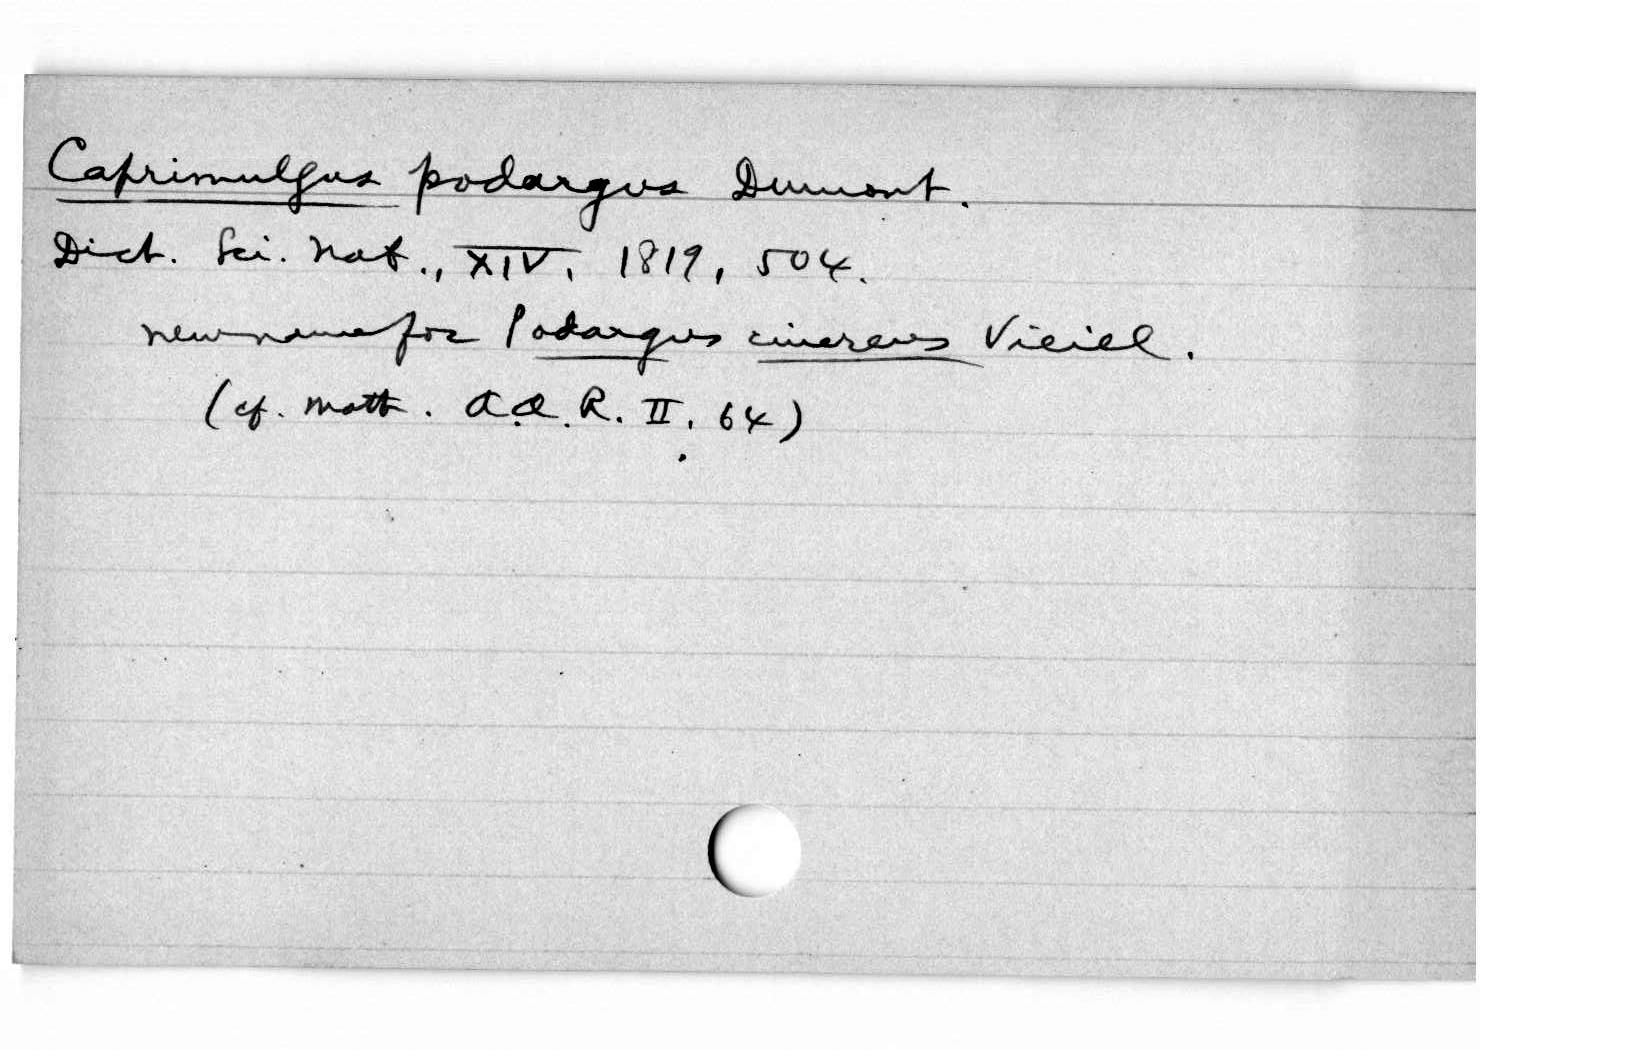 Caprimulgus podargus Dumont.
Dict. Sci. Nat., XIV, 1819, 504.
new name for Podargus cinereus Vieill.
(cf. Math. A.A.R. II, 64)